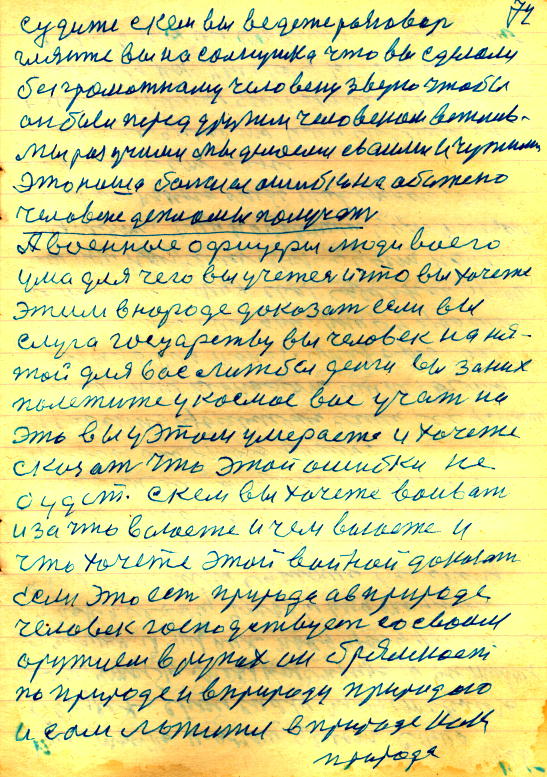 74
судите скем вы ведете разговор
гляньте вы на солнушка что вы сделали
безграмотнаму человеку зверю чтобы
он были перед другим человеком
мы роз учили мы своими и чужими
это наша ошибка на обежено
человеке депломы получат
А военные офицеры люди воего
ума для чего вы учетеся что вы хочете
этим внароде доказат если вы
слуга государству вы человек на ня-
той для вас былиб денги вы заних
полетите укосмос вас учат на
это вы уэтом умераете и хочете
сказат что этой ошибки не
будет. скем вы хочете воиват
иза что воюете и чем воюете и
что хочете этой войной доказат
если это ест природа авприроде
человек господствует сосвоим
оружием вруках он
по природе и вприроди природою
и сам вприроде как
природа